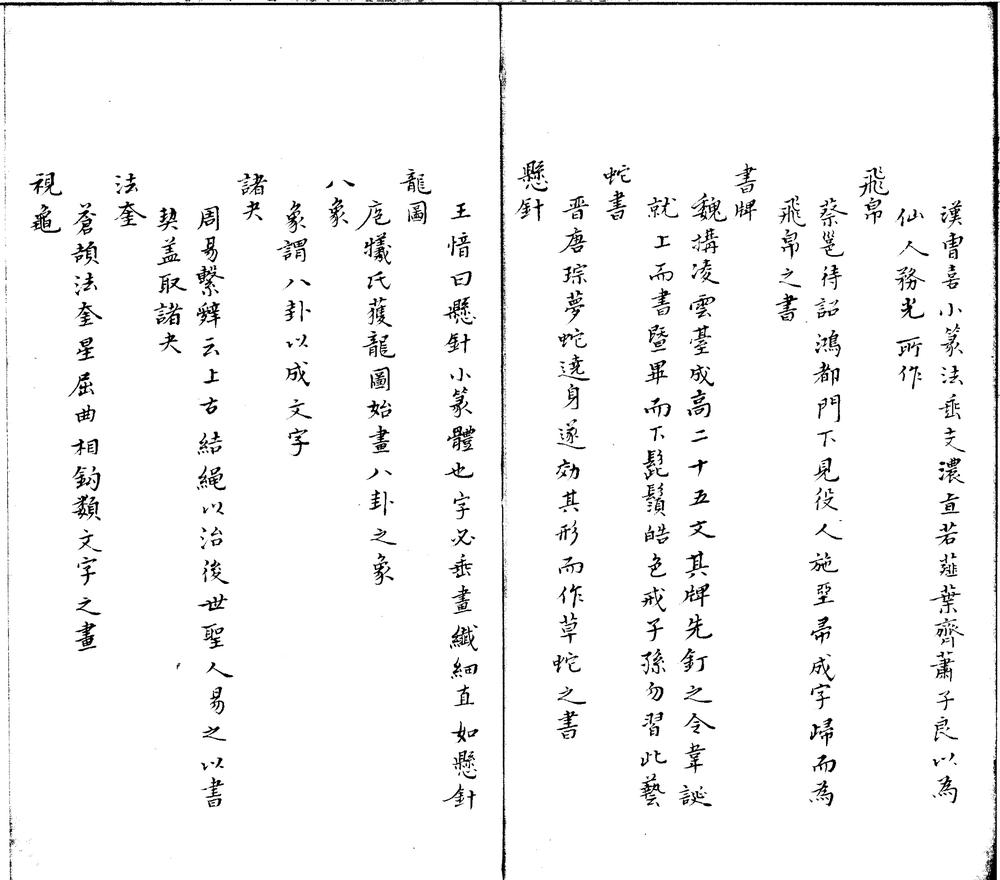 漢曹喜小篆法垂支濃直若薤葉齊蕭子良以為
仙人務光所作
飛帛
蔡邕待詔鴻都門下見役人施堊帚成字歸而為
飛帛之書
書牌
魏搆凌雲臺成高二十五文其牌先釘之令韋誕
就上而書暨畢而下髭鬚皓色戒子孫勿習此藝
蛇書
晉唐琮夢蛇遶身遂効其形而作草蛇之書
懸針
王愔曰懸針小篆體也字必垂畫纖細直如懸針
龍圖
庖犧氏獲龍圖始畫八卦之象
八象
象謂八卦以成文字
諸夬
周易繫辭云上古結繩以治後世聖人易之以書
契盖取諸夬
法奎
蒼頡法奎星屈曲相鈎類文字之畫
視龜